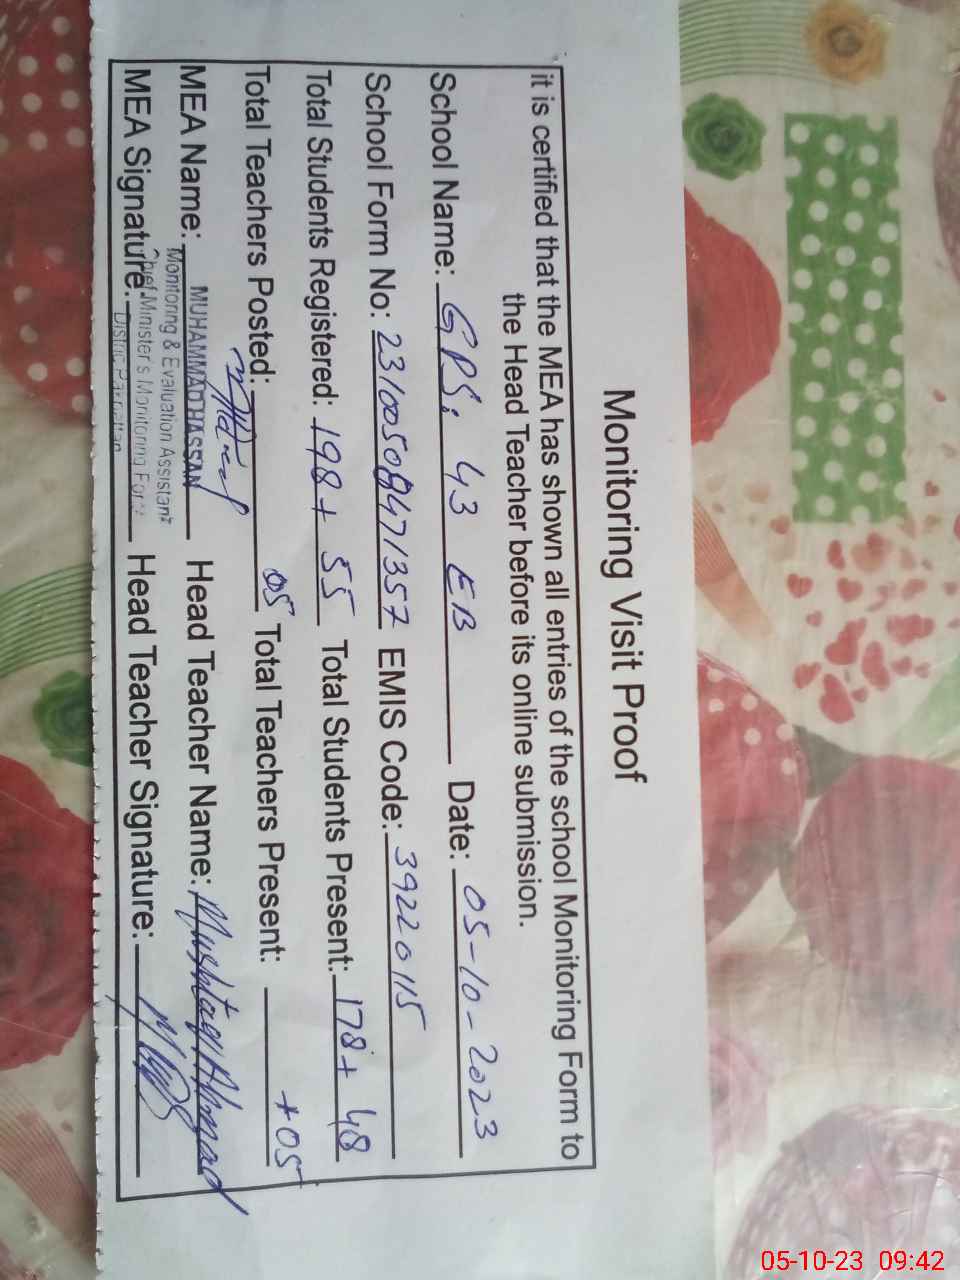 Monitoring Visit Proof
it is certified that the MEA has shown all entries of the school Monitoring Form to
the Head Teacher before its online submission.
School Name: GPS: 43 EB Date: 05-10-2023
School Form No: 23100509471357 EMIS Code: 39220115
Total Students Registered: 198+ 55 Total Students Present: 178+ 48
Total Teachers Posted: 05 Total Teachers Present: +05
MEA Name: MUHAMMAD HASSAN Head Teacher Name: Mushtaq Ahmad
Monitoring & Evaluation Assistant
Chief Minister's Monitoring Force
MEA Signature: Head Teacher Signature:
District Pakpattan
05-10-23 09:42